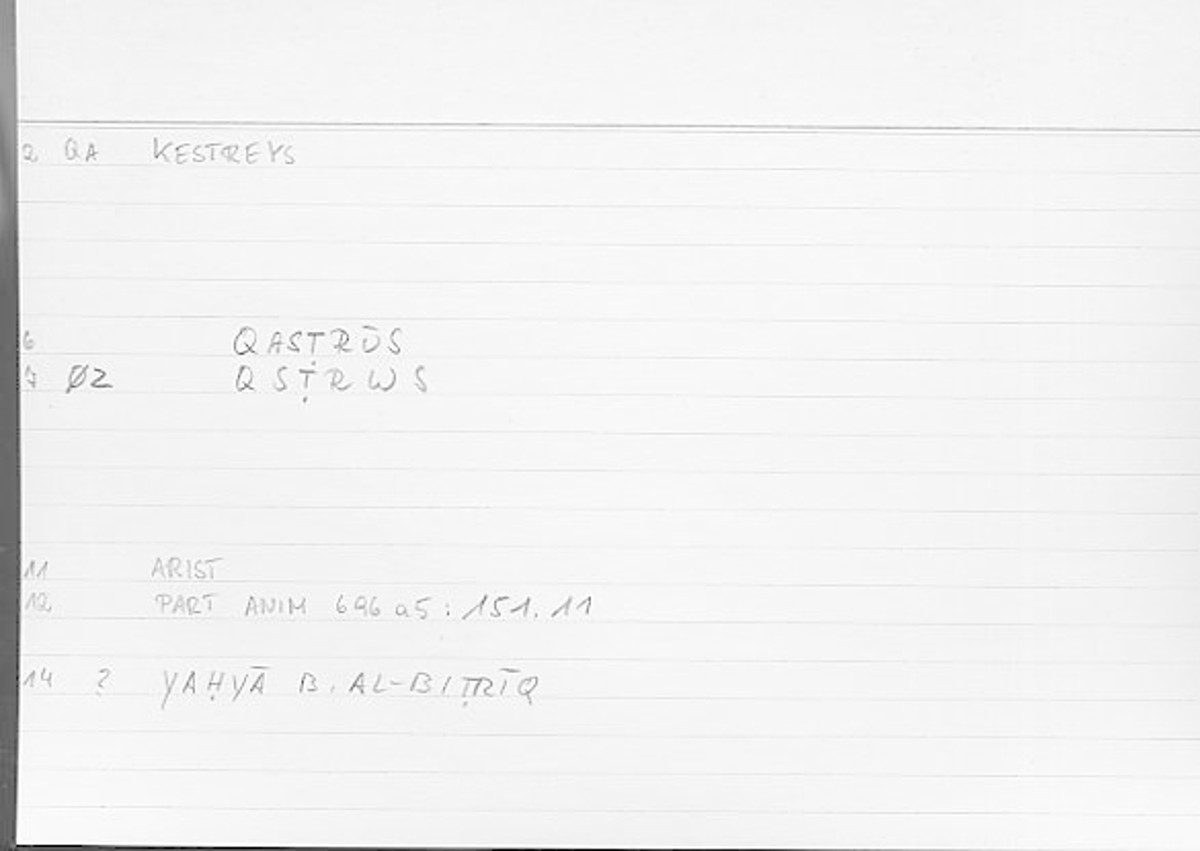 2 QA KESTREYS
6 QASṬRŪS
7 ØZ QSṬRWS
11 ARIST
12 PART ANIM 696 a5 : 151. 11
14 ? YAḤYĀ B. AL-BIṬRĪQ